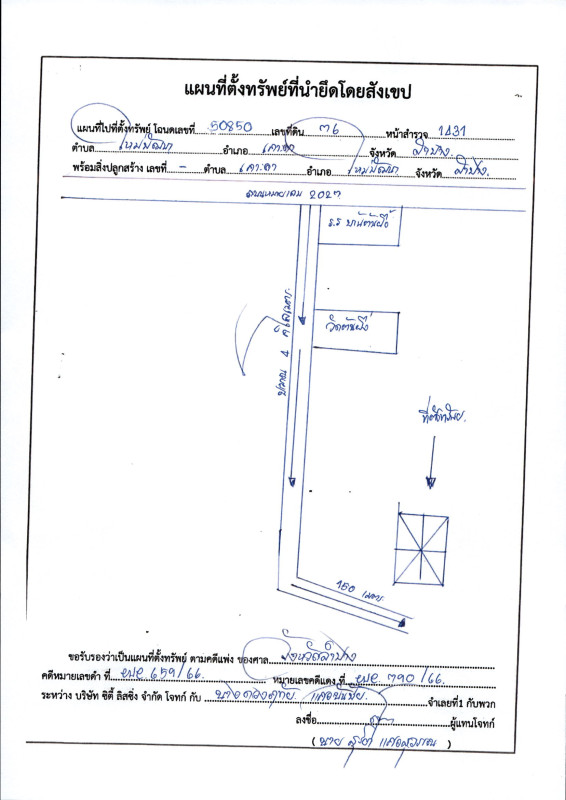 แผนที่ตั้งทรัพย์ที่นำยึดโดยสังเขป
แผนที่ไปที่ตั้งทรัพย์ โฉนดเลขที่ 50850 เลขที่ดิน 36 หน้าสำรวจ 1431
ตำบล ใหม่พัฒนา อำเภอ เกาะคา จังหวัด ลำปาง
พร้อมสิ่งปลูกสร้าง เลขที่ - ตำบล เกาะคา อำเภอ ใหม่พัฒนา จังหวัด ลำปาง
ถนนหมายเลข 2027
ร.ร บ้านต้นผึ้ง
วัดต้นผึ้ง
ประมาณ 4 กิโลเมตร
ที่ตั้งทรัพย์
150 เมตร
ขอรับรองว่าเป็นแผนที่ตั้งทรัพย์ ตามคดีแพ่ง ของศาล จังหวัดลำปาง
คดีหมายเลขดำ ที่ ผบE 659/66 หมายเลขคดีแดง ที่ ผบE 790/66
ระหว่าง บริษัท ซิตี้ ลิสซิ่ง จำกัด โจทก์ กับ จำเลยที่1 กับพวก
ลงชื่อ ผู้แทนโจทก์